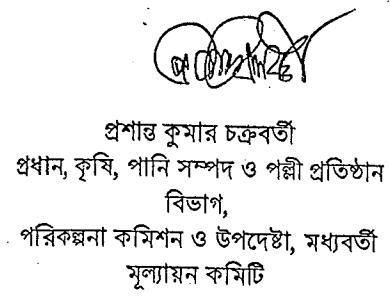 প্রশান্ত কুমার চক্রবর্তী
প্রধান, কৃষি, পানি সম্পদ ও পল্লী প্রতিষ্ঠান
বিভাগ,
পরিকল্পনা কমিশন ও উপদেষ্টা, মধ্যবর্তী
মূল্যায়ন কমিটি